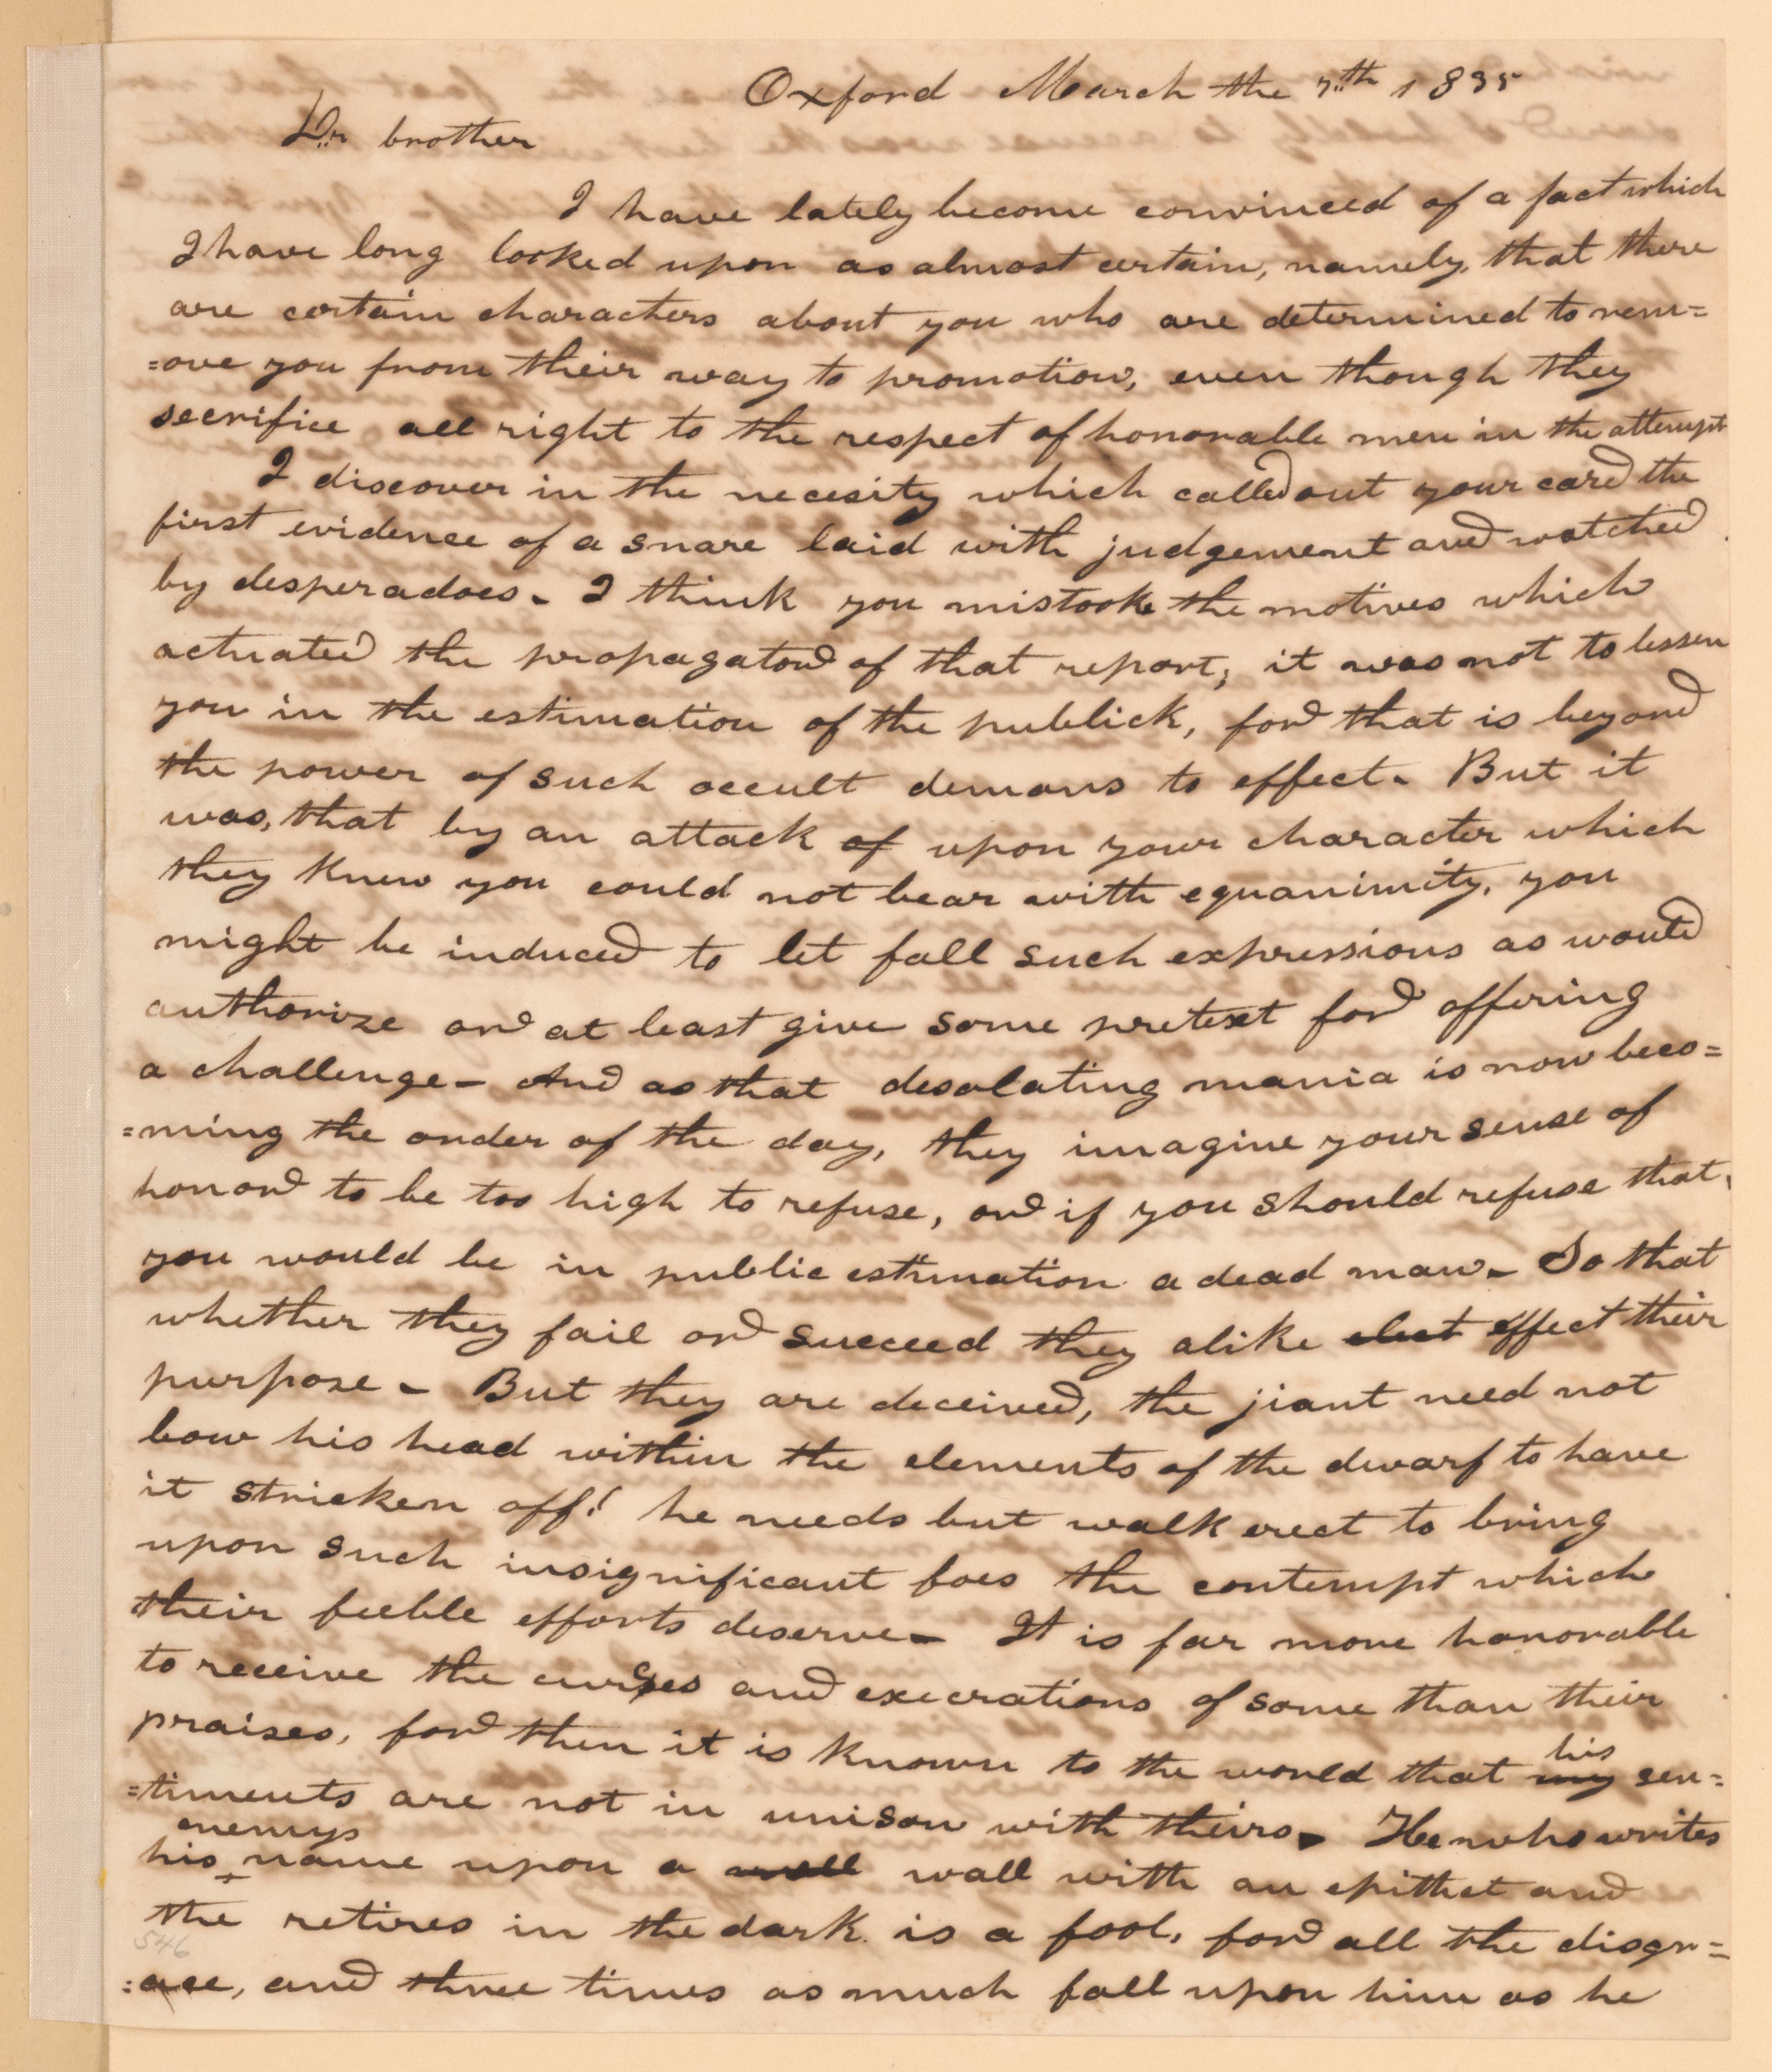 Oxford March the 7th 1835
Dr brother
I have lately become convinced of a fact which
I have long looked upon as almost certain, namely, that there
are certain characters about you who are determined to rem=
=ove you from their way to promotion, even though they
secrifice all right to the respect of honorable men in the attempt
I discover in the necesity which called out your card the
first evidence of a snare laid with judgement and watched
by desperadoes. I think you mistook the motives which
actuated the propagator of that report; it was not to lessen
you in the estimation of the publick, for that is beyond
the power of such occult demons to effect. But it
was, that by an attack of upon your character which
they knew you could not bear with equanimity, you
might be induced to let fall such expressions as would
authorize or at least give some pretext for offering
a challenge - And as that desolating mania is now beco=
=ming the order of the day, they imagine your sense of
honor to be too high to refuse, or if you should refuse that,
you would be in public estimation a dead man. So that
whether they fail or succeed they alike effect their
purpose - But they are deceived, the jiant need not
bow his head within the elements of the dwarf to have
it stricken off! he needs but walk erect to bring
upon such insignificant foes the contempt which
their feeble efforts deserve - It is far more honorable
to receive the curses and execrations of some than their
praises, for then it is known to the world that my his sen=
=timents are not in unison with theirs. He who writes
his enemys name upon a wall with an epithet and
the retires in the dark is a fool, for all the disgr=
=ace, and three times as much fall upon him as he
546